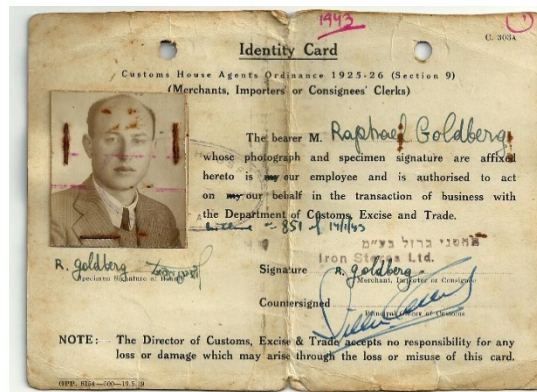 1943
1
C. 303A
Identity Card
Customs House Agents Ordinance 1925-26 (Section 9)
(Merchants, Importers' or Consignees' Clerks)
The bearer M. Raphael Goldberg
whose photograph and specimen signature are affixed
hereto is my our employee and is authorised to act
on my our behalf in the transaction of business with
the Department of Customs, Excise and Trade.
851 of 14/1/43
מחסני ברזל בע"מ
Iron Stores Ltd.
R. goldberg
Specimen Signature of Bearer
Signature R. goldberg
Merchant, Importer or Consignee
Countersigned
Principal Officer of Customs
NOTE: The Director of Customs, Excise & Trade accepts no responsibility for any
loss or damage which may arise through the loss or misuse of this card.